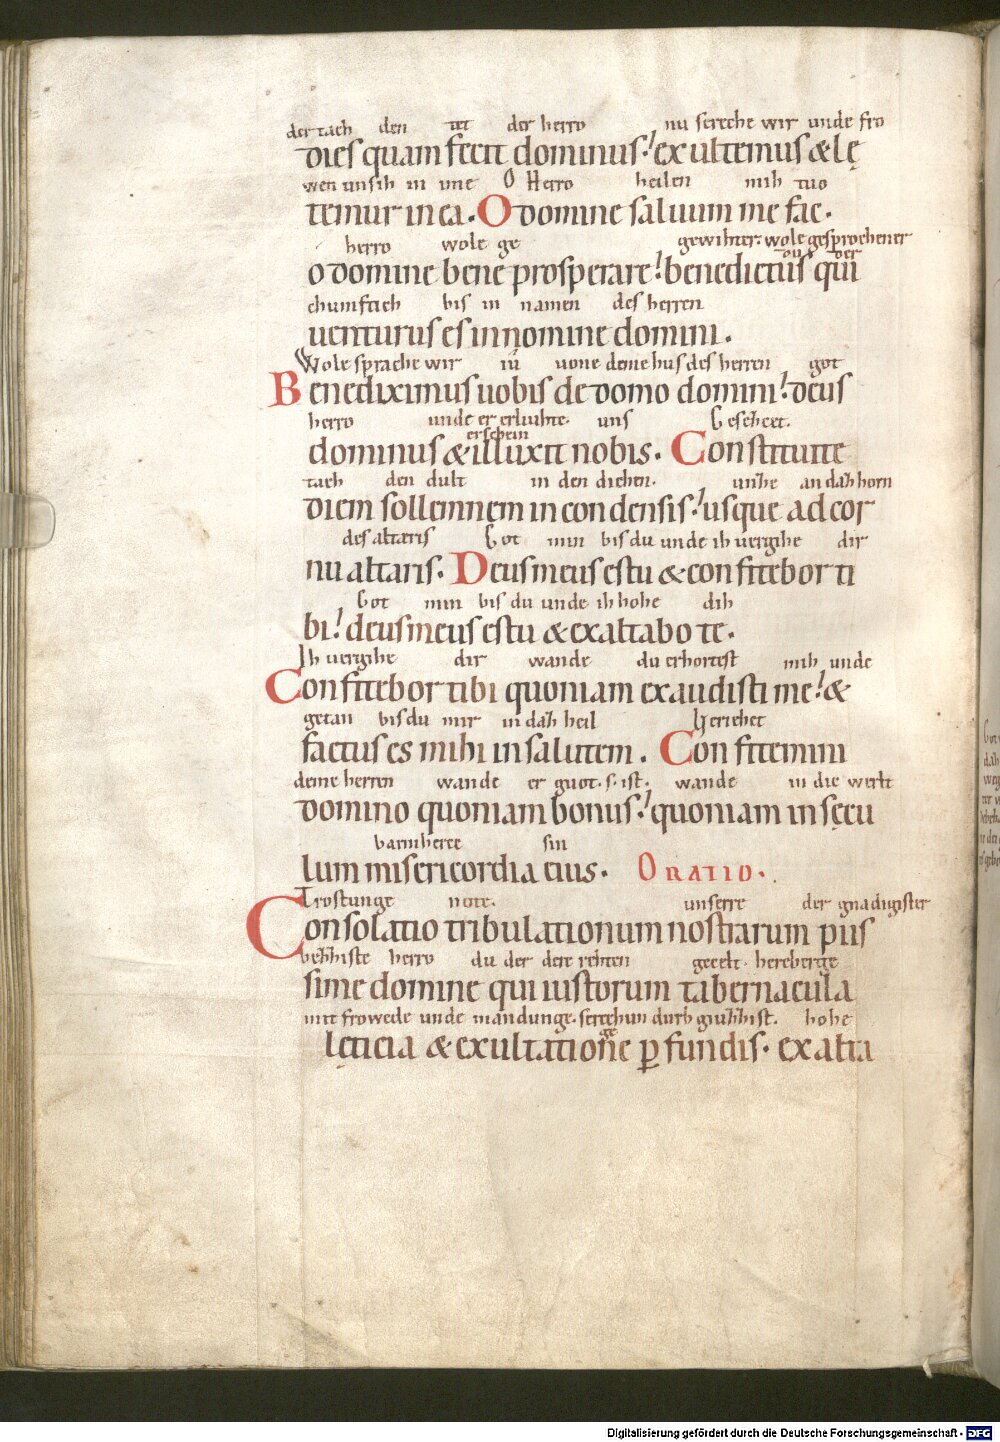 der tach den tet der herro nu screche wir unde fro
dies quam fecit dominus. exultemus & lę
wen unsih in ime O Herro heilen mih tuo
temur in ea. O domine saluum me fac.
herro wole ge gewihter. wole gesprochener
du der
o domine bene prosperare. benedictus qui
chumftich bis in namen des herren
uenturus es in nomine domini.
Wole sprache wir iu uone deme hus des herren got
Benediximus uobis de domo domini. deus
herro unde er erluhte. uns Gesecet.
erschein
dominus & illuxit nobis. Constituite
tach den dult in den dichen. unze an daz horn
diem sollemnem in condensis. usque ad cor
des altaris Got min bis du unde ih vergihe dir
nu altaris. Deus meus es tu & confitebor ti
Got min bis du unde ih hohe dih
bi. deus meus es tu & exaltabo te.
Ih uergihe dir wande du erhortest mih unde
Confitebor tibi quoniam exaudisti me. &
getan bis du mir in daz heil
factus es mihi in salutem. Confitemini
deme herren wande er guot. s. ist. wande in die werlt
domino quoniam bonus. quoniam in sęcu
barmherce sin
lum misericordia eius. ORATIO.
Trostunge note. unserre der gnadigister
Consolatio tribulationum nostrarum piis
herro du der dere rehten gecelt. hereberge
sime domine qui iustorum tabernacula
mit frowede unde mandunge. screchun durh giuzzist. hohe
ge
lęticia & exultatione ꝑfundis. exalta
Digitalisierung gefördert durch die Deutsche Forschungsgemeinschaft - DFG